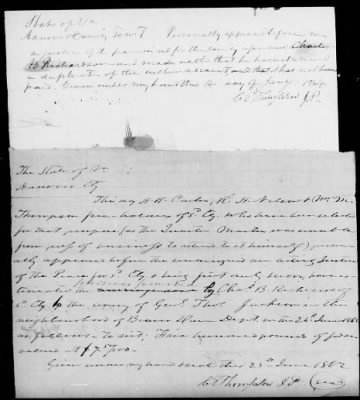 State of Va
Hanover County To wit Personally appeared before me
a justice of the peace in and for the county aforesaid Charles
B Richardson and made oath that he has not
a duplicate of the within account, and that has not been
paid. Given under my hand this 14 day of Jany
C E Thompson J.P.
The State of Va
Hanover Cty
This day H. R. Carter, R. H. Nelson & Wm. M.
Thompson free-holders of sd Cty who have been selected
for that purpose (as the Quarter Master was unable
from press of business to attend to it himself) person-
ally appeared before the undersigned an acting Justice
of the Peace for sd Cty & being first duly sworn, have
by Chas. B Richardson of
sd Cty to the army of Genl. Thos. Jackson in the
neighbourhood of Beaver Dam Depot. on the 26th June 1862
as follows. to wit, Five hundred pounds of
at $7.50
Given under my hand & seal this 28th June 1862
C E Thompson J.P. (seal)